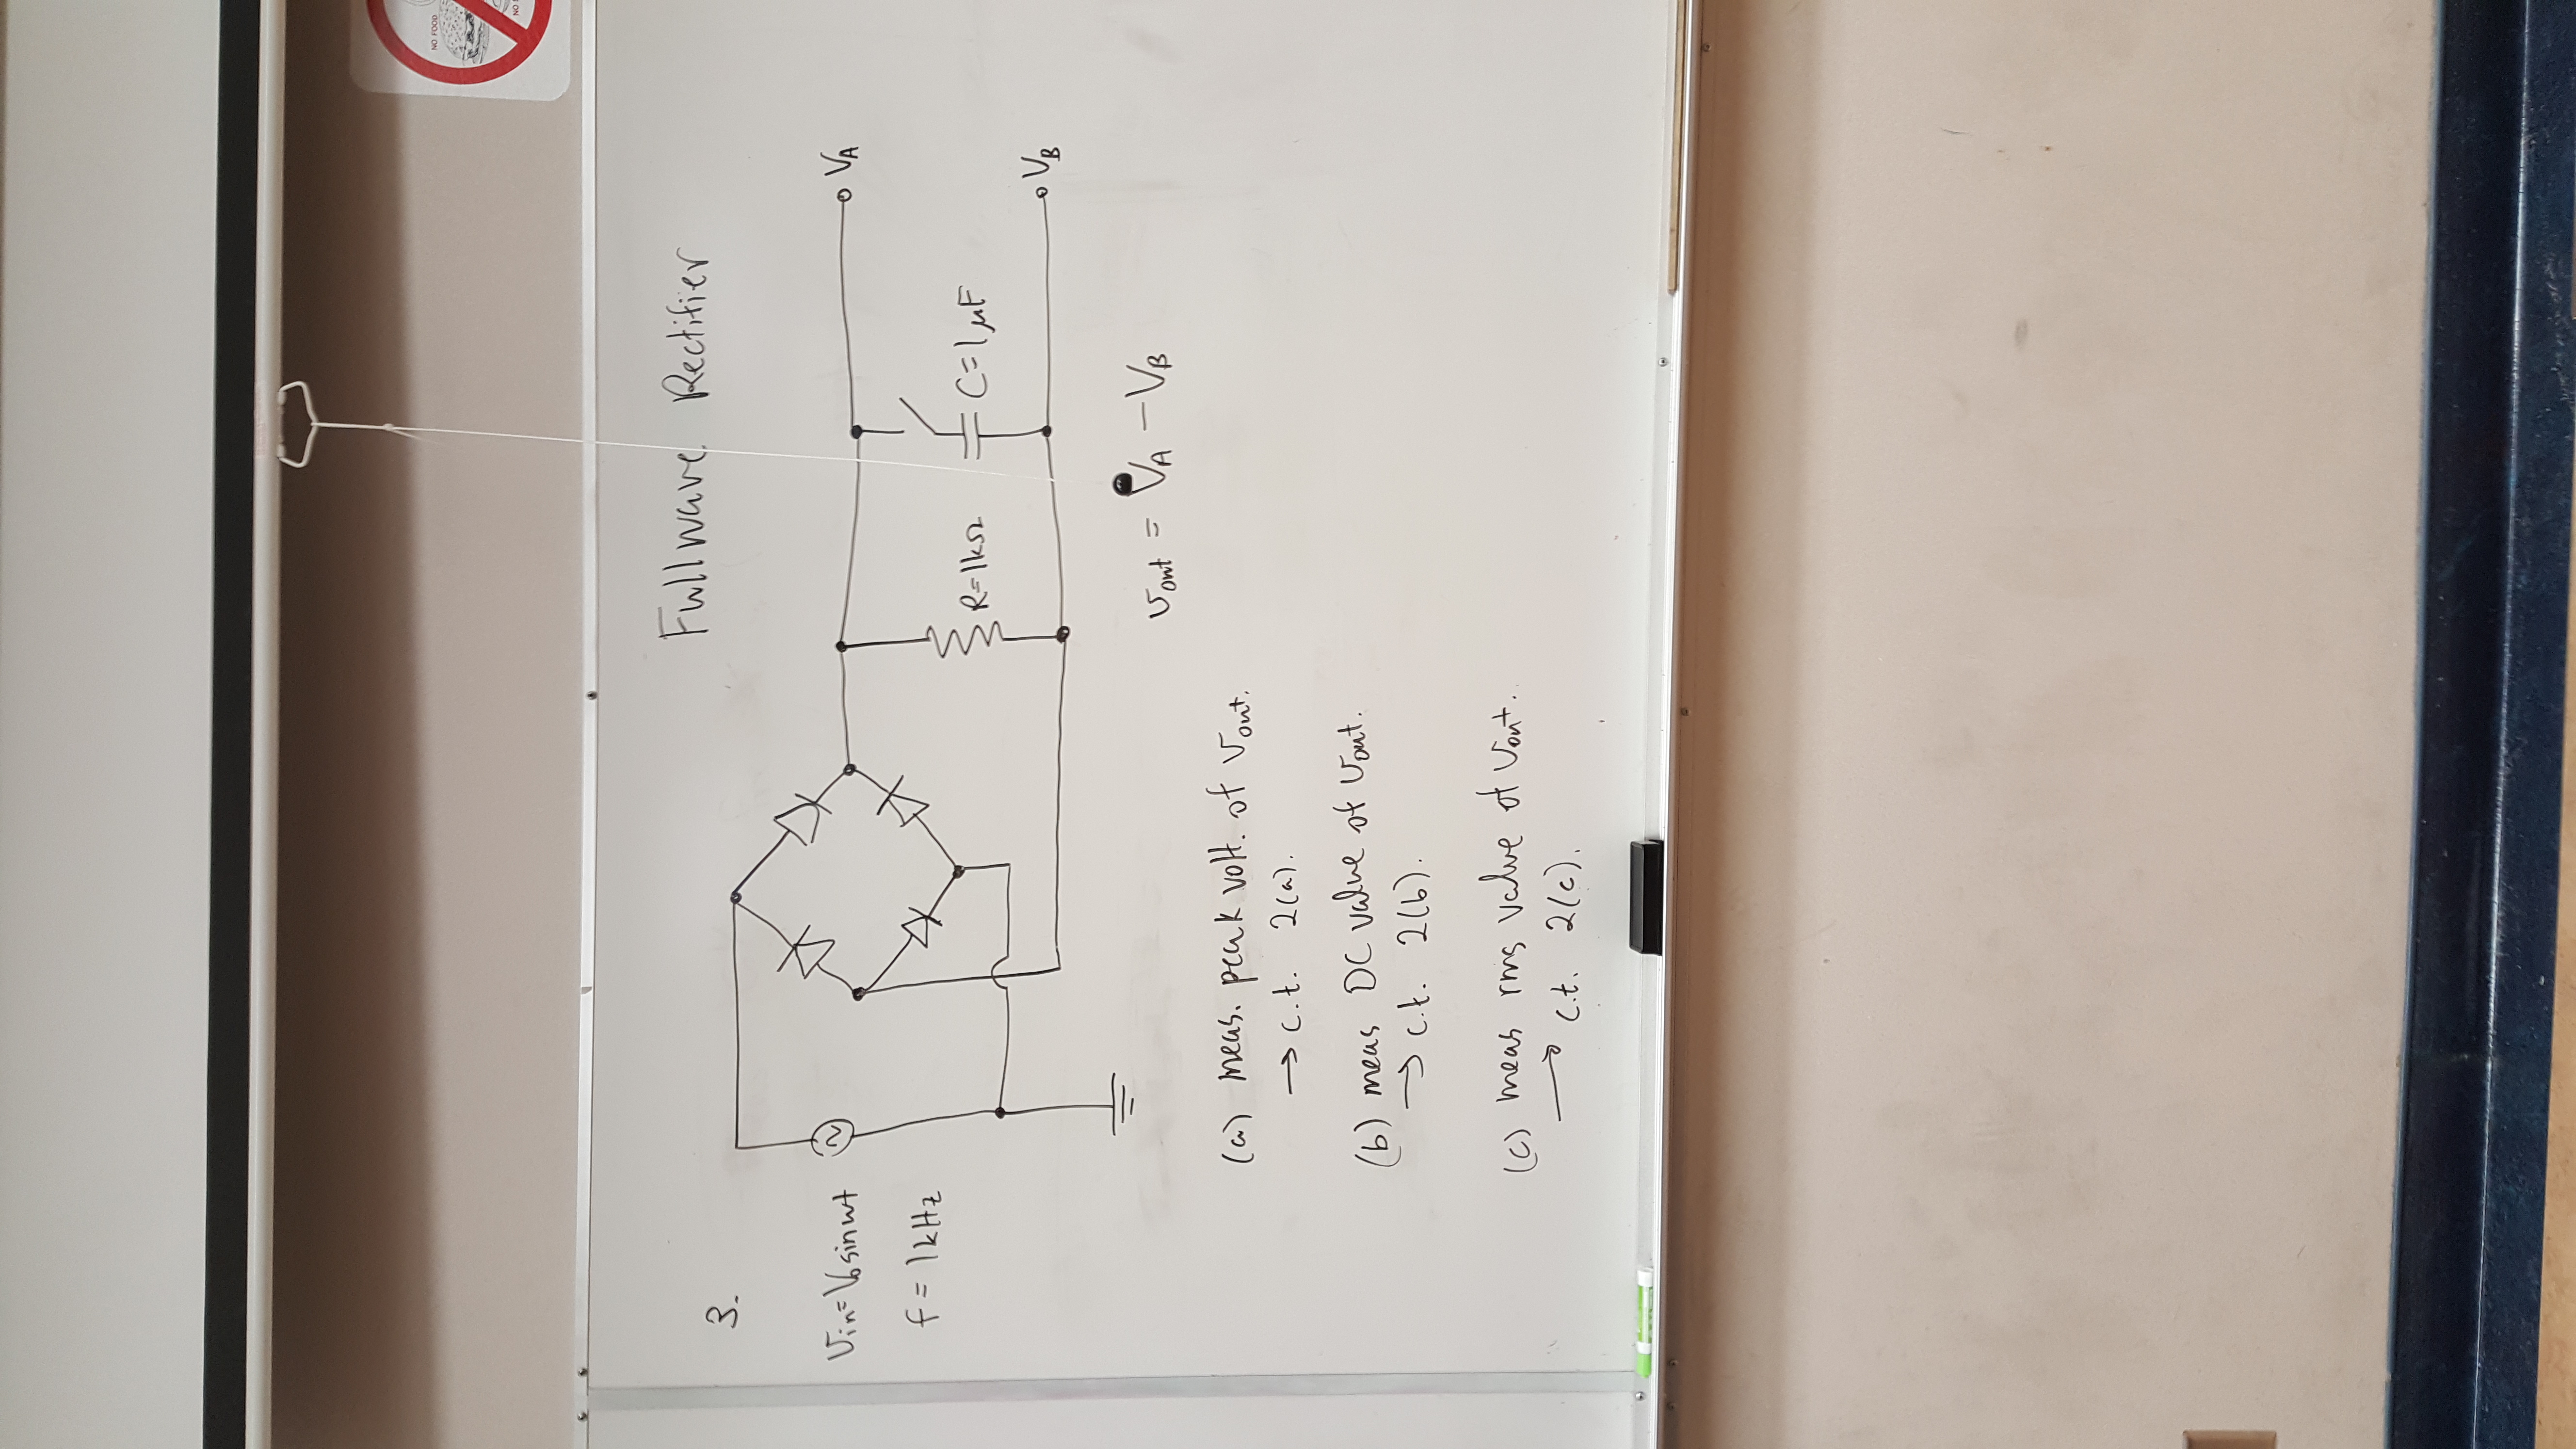 Fullwave Rectifier
3.
Vin=V₀sinωt
f = 1kHz
R=1kΩ
C=1μF
VA
VB
Vout = VA - VB
(a) meas. peak volt. of Vout.
→ c.t. 2(a).
(b) meas DC value of Vout.
→ c.t. 2(b).
(c) meas rms value of Vout.
→ c.t. 2(c).
NO FOOD
NO